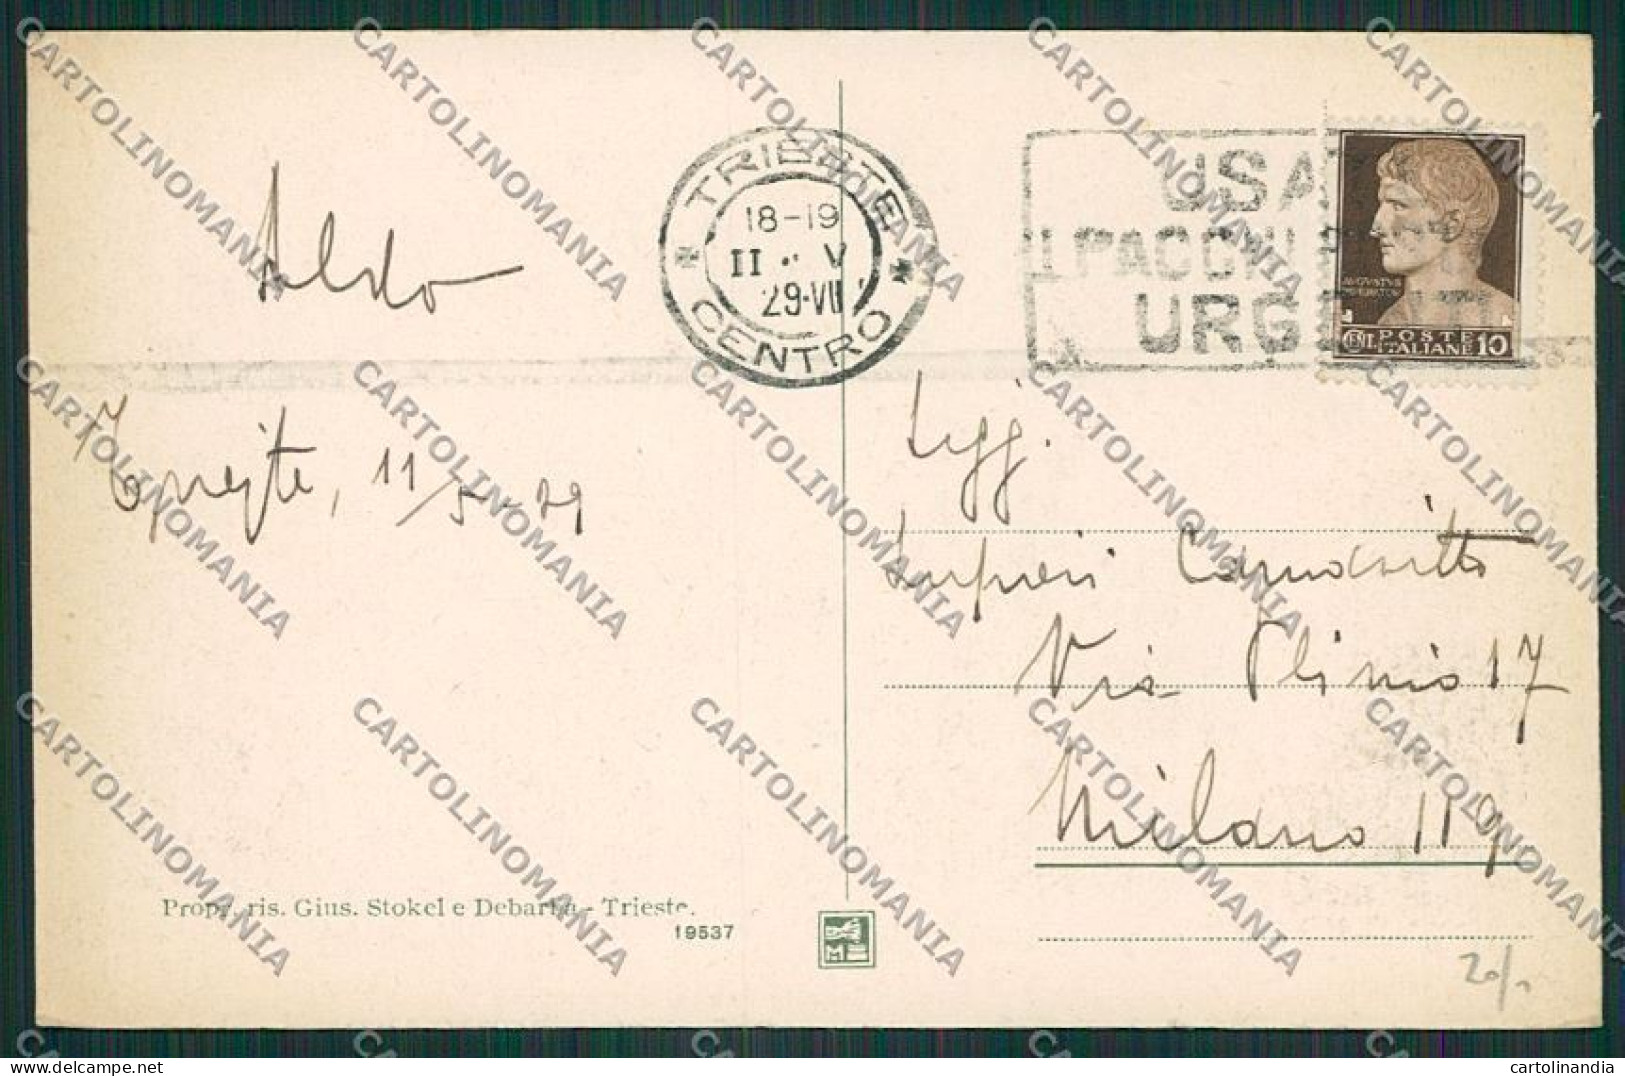 TRIESTE
18-19
11 · V
29·VII
CENTRO
USA
I PACCHI
URGENTI
AVGVSTVS
CENT. POSTE ITALIANE 10
Aldo
Trieste, 11/5-29
Sigg.
Superi
Via Plinio 17
Milano 119
Propr. ris. Gius. Stokel e Debarba - Trieste.
19537
M
20/-
CARTOLINOMANIA
cartolinandia